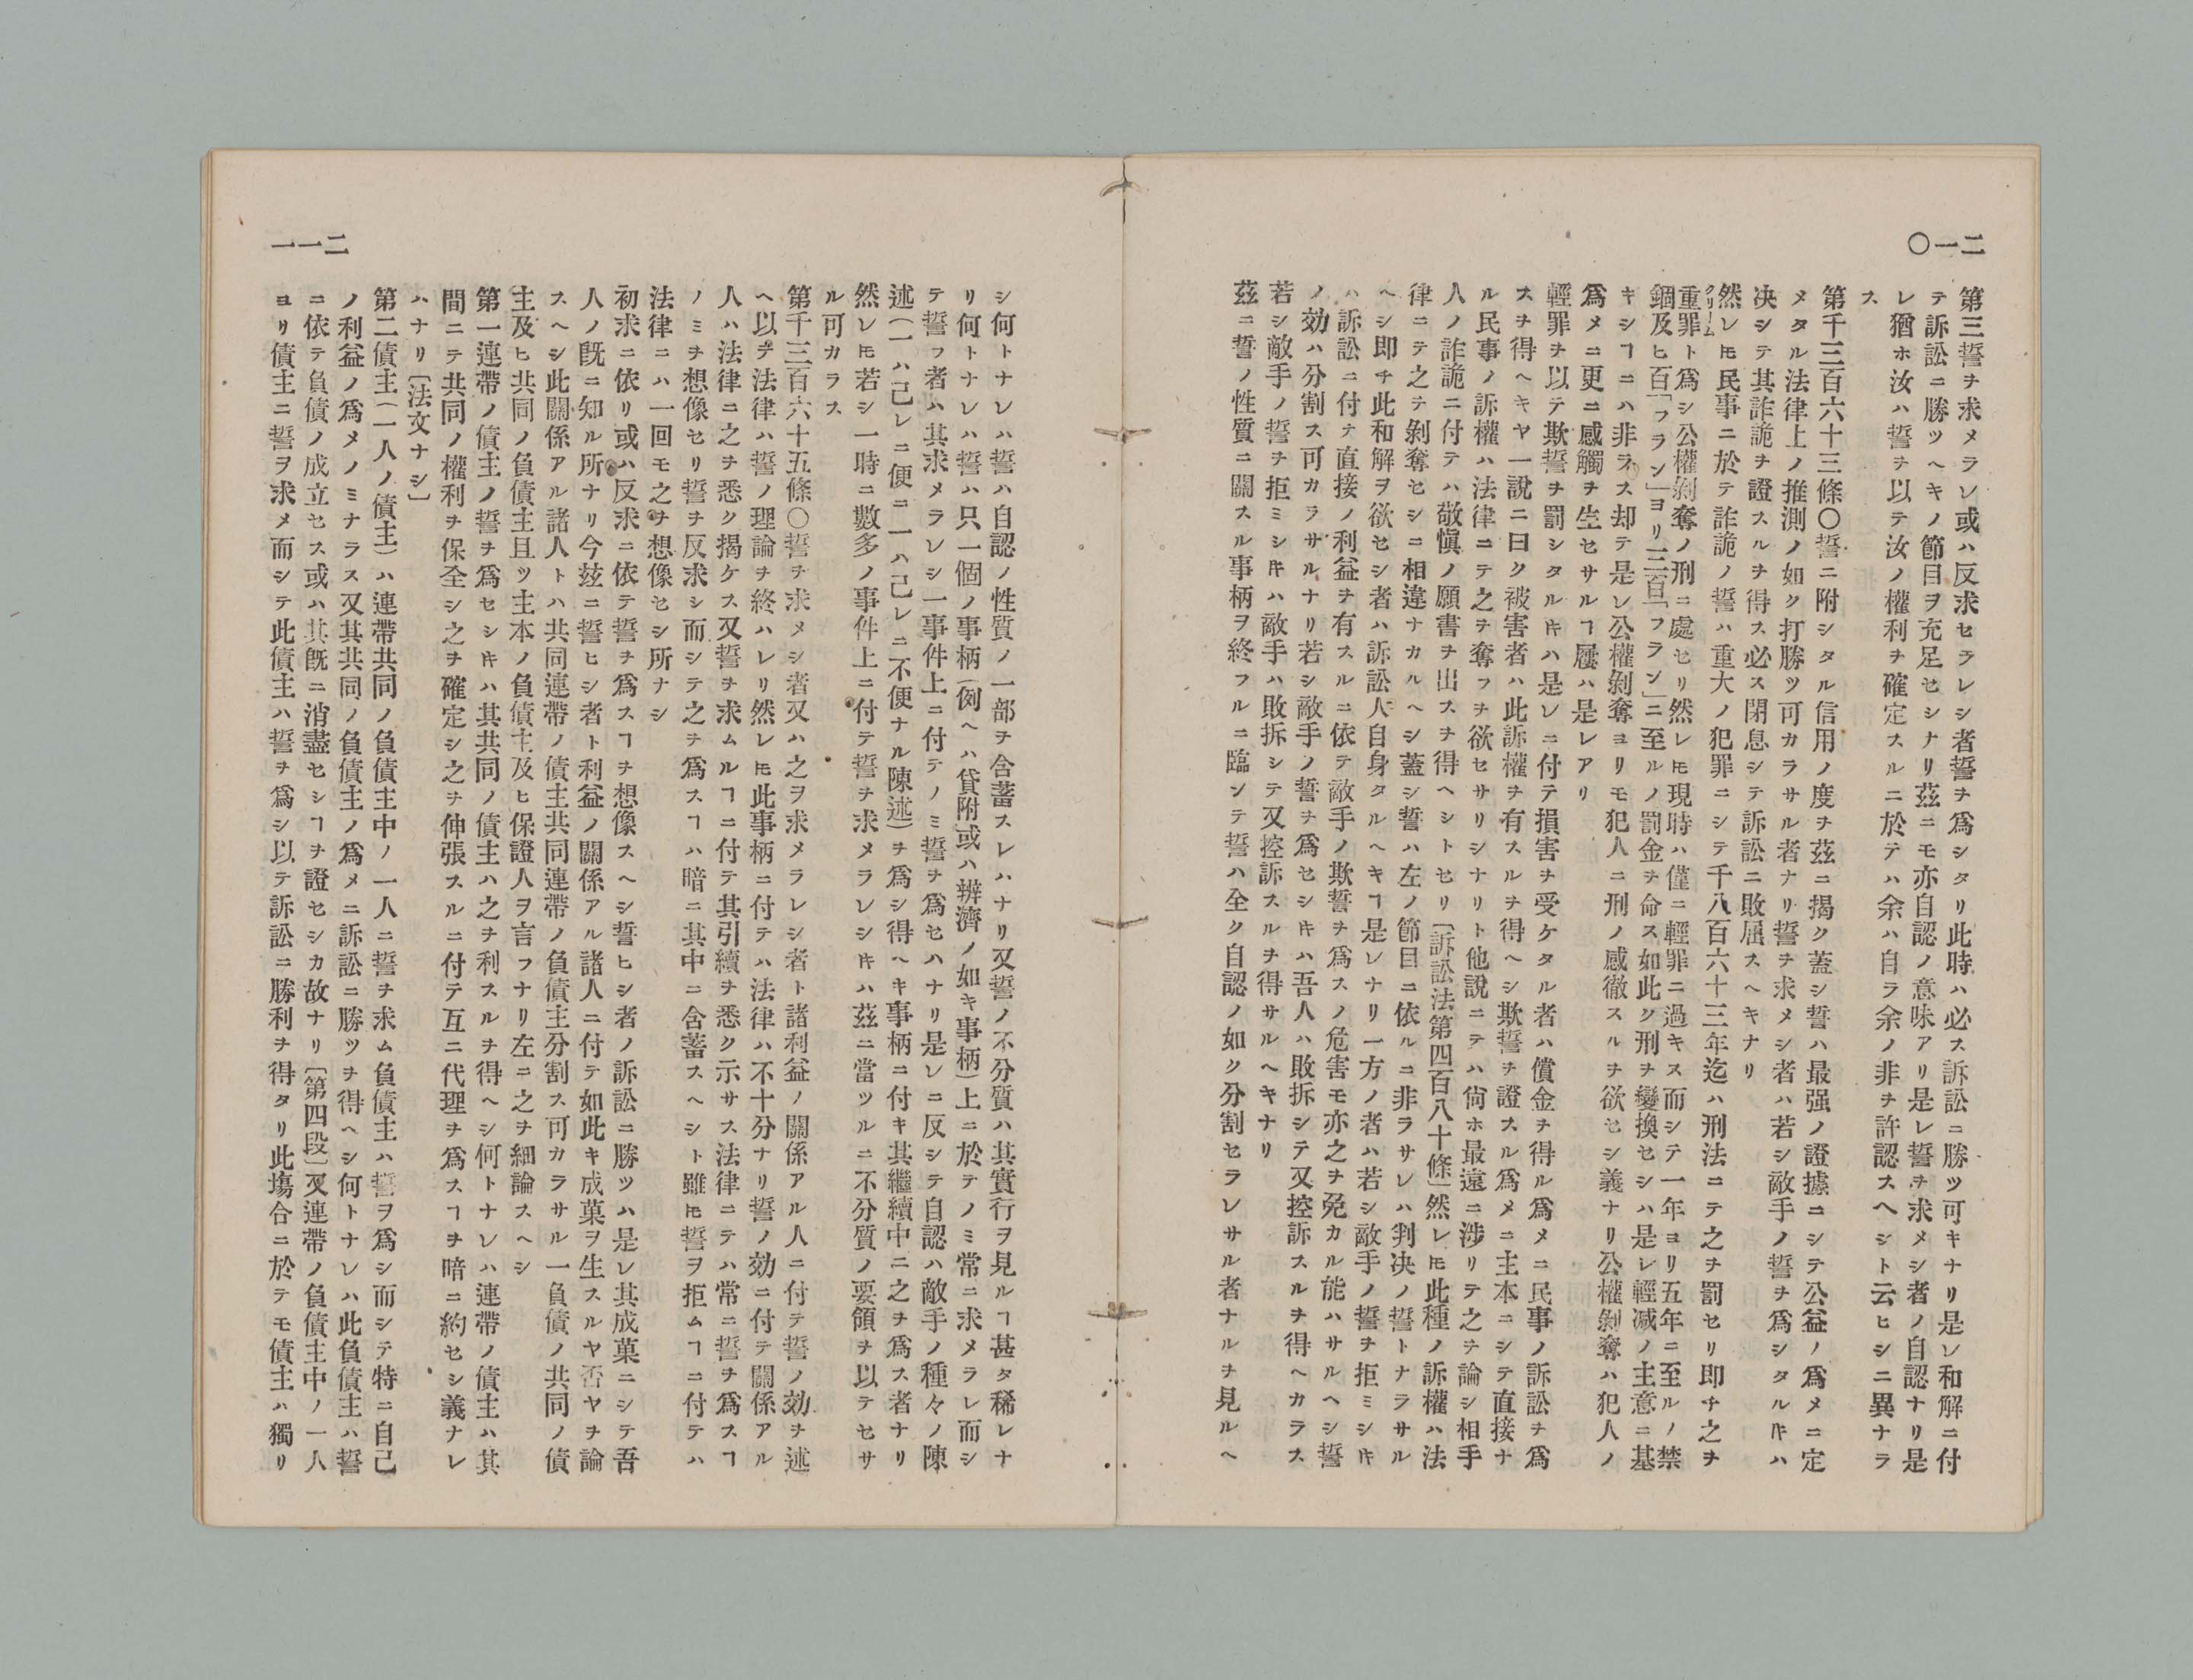 二一〇
第三誓ヲ求メラレ或ハ反求セラレシ者誓ヲ爲シタリ此時ハ必ス訴訟ニ勝ツ可キナリ是レ和解ニ付
テ訴訟ニ勝ツヘキノ節目ヲ充足セシナリ茲ニモ亦自認ノ意味アリ是レ誓ヲ求メシ者ノ自認ナリ是
レ猶ホ汝ハ誓ヲ以テ汝ノ權利ヲ確定スルニ於テハ余ハ自ラ余ノ非ヲ許認スヘシト云ヒシニ異ナラ
ス
第千三百六十三條〇誓ニ附シタル信用ノ度ヲ茲ニ揭ク蓋シ誓ハ最强ノ證據ニシテ公益ノ爲メニ定
メタル法律上ノ推測ノ如ク打勝ツ可カラサル者ナリ誓ヲ求メシ者ハ若シ敵手ノ誓ヲ爲シタル𪜈ハ
决シテ其詐詭ヲ證スルヲ得ス必ス閉息シテ訴訟ニ敗屈スヘキナリ
然レ𪜈民事ニ於テ詐詭ノ誓ハ重大ノ犯罪ニシテ千八百六十三年迄ハ刑法ニテ之ヲ罰セリ即チ之ヲ
重罪クリームト爲シ公權剝奪ノ刑ニ處セリ然レ𪜈現時ハ僅ニ輕罪ニ過キス而シテ一年ヨリ五年ニ至ルノ禁
錮及ヒ百「フラン」ヨリ三百「フラン」ニ至ルノ罰金ヲ命ス如此ク刑ヲ變換セシハ是レ輕减ノ主意ニ基
キシヿニハ非ラス却テ是レ公權剝奪ヨリモ犯人ニ刑ノ感徹スルヲ欲セシ義ナリ公權剝奪ハ犯人ノ
爲メニ更ニ感觸ヲ生セサルヿ屢ハ是レアリ
輕罪ヲ以テ欺誓ヲ罰シタル𪜈ハ是レニ付テ損害ヲ受ケタル者ハ償金ヲ得ル爲メニ民事ノ訴訟ヲ爲
スヲ得ヘキヤ一說ニ曰ク被害者ハ此訴權ヲ有スルヲ得ヘシ欺誓ヲ證スル爲メニ主本ニシテ直接ナ
ル民事ノ訴權ハ法律ニテ之ヲ奪フヲ欲セサリシナリト他說ニテハ尙ホ最遠ニ涉リテ之ヲ論シ相手
人ノ詐詭ニ付テハ敬愼ノ願書ヲ出スヲ得ヘシトセリ〔訴訟法第四百八十條〕然レ𪜈此種ノ訴權ハ法
律ニテ之ヲ剝奪セシニ相違ナカルヘシ蓋シ誓ハ左ノ節目ニ依ルニ非ラサレハ判决ノ誓トナラサル
ヘシ即チ此和解ヲ欲セシ者ハ訴訟人自身タルヘキヿ是レナリ一方ノ者ハ若シ敵手ノ誓ヲ拒ミシ𪜈
ハ訴訟ニ付テ直接ノ利益ヲ有スルニ依テ敵手ノ欺誓ヲ爲スノ危害モ亦之ヲ免カル能ハサルヘシ誓
ノ効ハ分割ス可カラサルナリ若シ敵手ノ誓ヲ爲セシ𪜈ハ吾人ハ敗拆シテ又控訴スルヲ得ヘカラス
若シ敵手ノ誓ヲ拒ミシ𪜈ハ敵手ハ敗拆シテ又控訴スルヲ得サルヘキナリ
茲ニ誓ノ性質ニ關スル事柄ヲ終フルニ臨ンテ誓ハ全ク自認ノ如ク分割セラレサル者ナルヲ見ルヘ
二一一
シ何トナレハ誓ハ自認ノ性質ノ一部ヲ含蓄スレハナリ又誓ノ不分質ハ其實行ヲ見ルヿ甚タ稀レナ
リ何トナレハ誓ハ只一個ノ事柄(例ヘハ貸附或ハ辨濟ノ如キ事柄)上ニ於テノミ常ニ求メラレ而シ
テ誓フ者ハ其求メラレシ一事件上ニ付テノミ誓ヲ爲セハナリ是レニ反シテ自認ハ敵手ノ種々ノ陳
述(一ハ己レニ便ニ一ハ己レニ不便ナル陳述)ヲ爲シ得ヘキ事柄ニ付キ其繼續中ニ之ヲ爲ス者ナリ
然レ𪜈若シ一時ニ數多ノ事件上ニ付テ誓ヲ求メラレシ𪜈ハ茲ニ當ツルニ不分質ノ要領ヲ以テセサ
ル可カラス
第千三百六十五條〇誓ヲ求メシ者又ハ之ヲ求メラレシ者ト諸利益ノ關係アル人ニ付テ誓ノ効ヲ述
ヘ以テ法律ハ誓ノ理論ヲ終ハレリ然レ𪜈此事柄ニ付テハ法律ハ不十分ナリ誓ノ効ニ付テ關係アル
人ハ法律ニ之ヲ悉ク揭ケス又誓ヲ求ムルヿニ付テ其引續ヲ悉ク示サス法律ニテハ常ニ誓ヲ爲スヿ
ノミヲ想像セリ誓ヲ反求シ而シテ之ヲ爲スヿハ暗ニ其中ニ含蓄スヘシト雖𪜈誓ヲ拒ムヿニ付テハ
法律ニハ一回モ之ヲ想像セシ所ナシ
初求ニ依リ或ハ反求ニ依テ誓ヲ爲スヿヲ想像スヘシ誓ヒシ者ノ訴訟ニ勝ツハ是レ其成菓ニシテ吾
人ノ旣ニ知ル所ナリ今玆ニ誓ヒシ者ト利益ノ關係アル諸人ニ付テ如此キ成菓ヲ生スルヤ否ヤヲ論
スヘシ此關係アル諸人トハ共同連帶ノ債主共同連帶ノ負債主分割ス可カラサル一負債ノ共同ノ債
主及ヒ共同ノ負債主且ツ主本ノ負債主及ヒ保證人ヲ言フナリ左ニ之ヲ細論スヘシ
第一連帶ノ債主ノ誓ヲ爲セシ𪜈ハ其共同ノ債主ハ之ヲ利スルヲ得ヘシ何トナレハ連帶ノ債主ハ其
間ニテ共同ノ權利ヲ保全シ之ヲ確定シ之ヲ伸張スルニ付テ互ニ代理ヲ爲スヿヲ暗ニ約セシ義ナレ
ハナリ〔法文ナシ〕
第二債主(一人ノ債主)ハ連帶共同ノ負債主中ノ一人ニ誓ヲ求ム負債主ハ誓ヲ爲シ而シテ特ニ自己
ノ利益ノ爲メノミナラス又其共同ノ負債主ノ爲メニ訴訟ニ勝ツヲ得ヘシ何トナレハ此負債主ハ誓
ニ依テ負債ノ成立セス或ハ其旣ニ消盡セシヿヲ證セシカ故ナリ〔第四段〕又連帶ノ負債主中ノ一人
ヨリ債主ニ誓ヲ求メ而シテ此債主ハ誓ヲ爲シ以テ訴訟ニ勝利ヲ得タリ此塲合ニ於テモ債主ハ獨リ